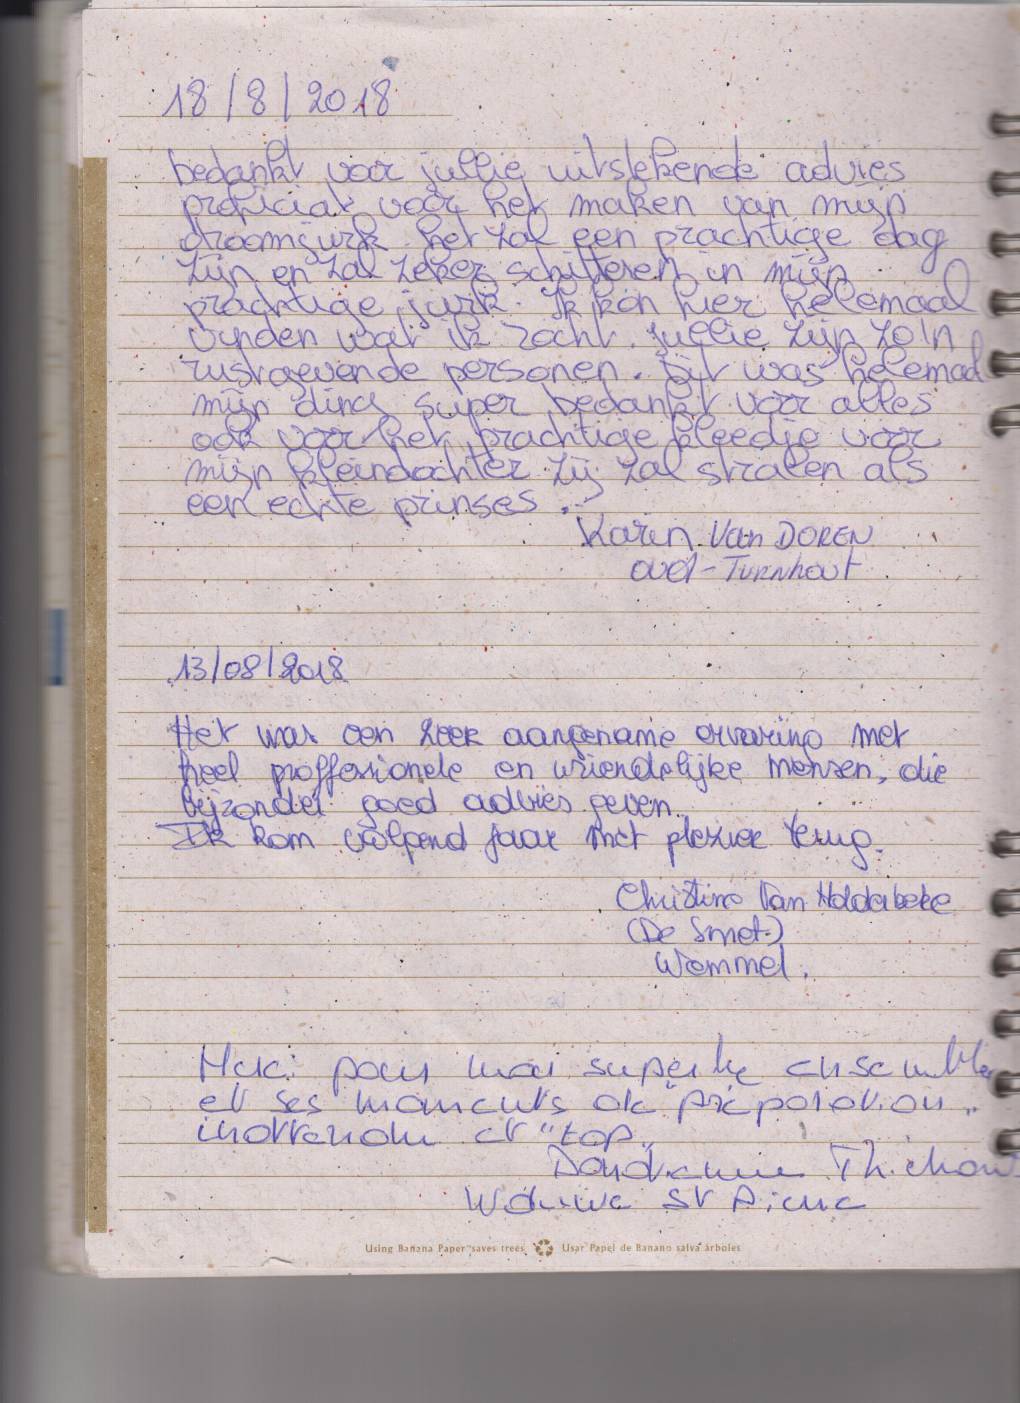 18/8/2018
bedankt voor jullie uitstekende advies
proficiat voor het maken van mijn
droomjurk. het zal een prachtige dag
zijn en zal zeker schitteren in mijn
prachtige jurk. Ik kon hier helemaal
vinden wat ik zocht. jullie zijn zo'n
rustgevende personen. Dit was helemaal
mijn ding super bedankt voor alles
ook voor het prachtige kleedje voor
mijn kleindochter zij zal stralen als
een echte prinses.
Karin Van DOREN
oud-Turnhout
13/08/2018
Het was een zeer aangename ervaring met
heel proffesionele en vriendelijke mensen, die
bijzonder goed advies geven.
Ik kom volgend jaar met plezier terug.
Christine Van
(De Smet)
Wemmel.
Merci pour mon superbe ensemble
et ses moments de "préparation"
et "top"
Woluwe St Pierre
Using Banana Paper saves trees Usar Papel de Banano salva árboles